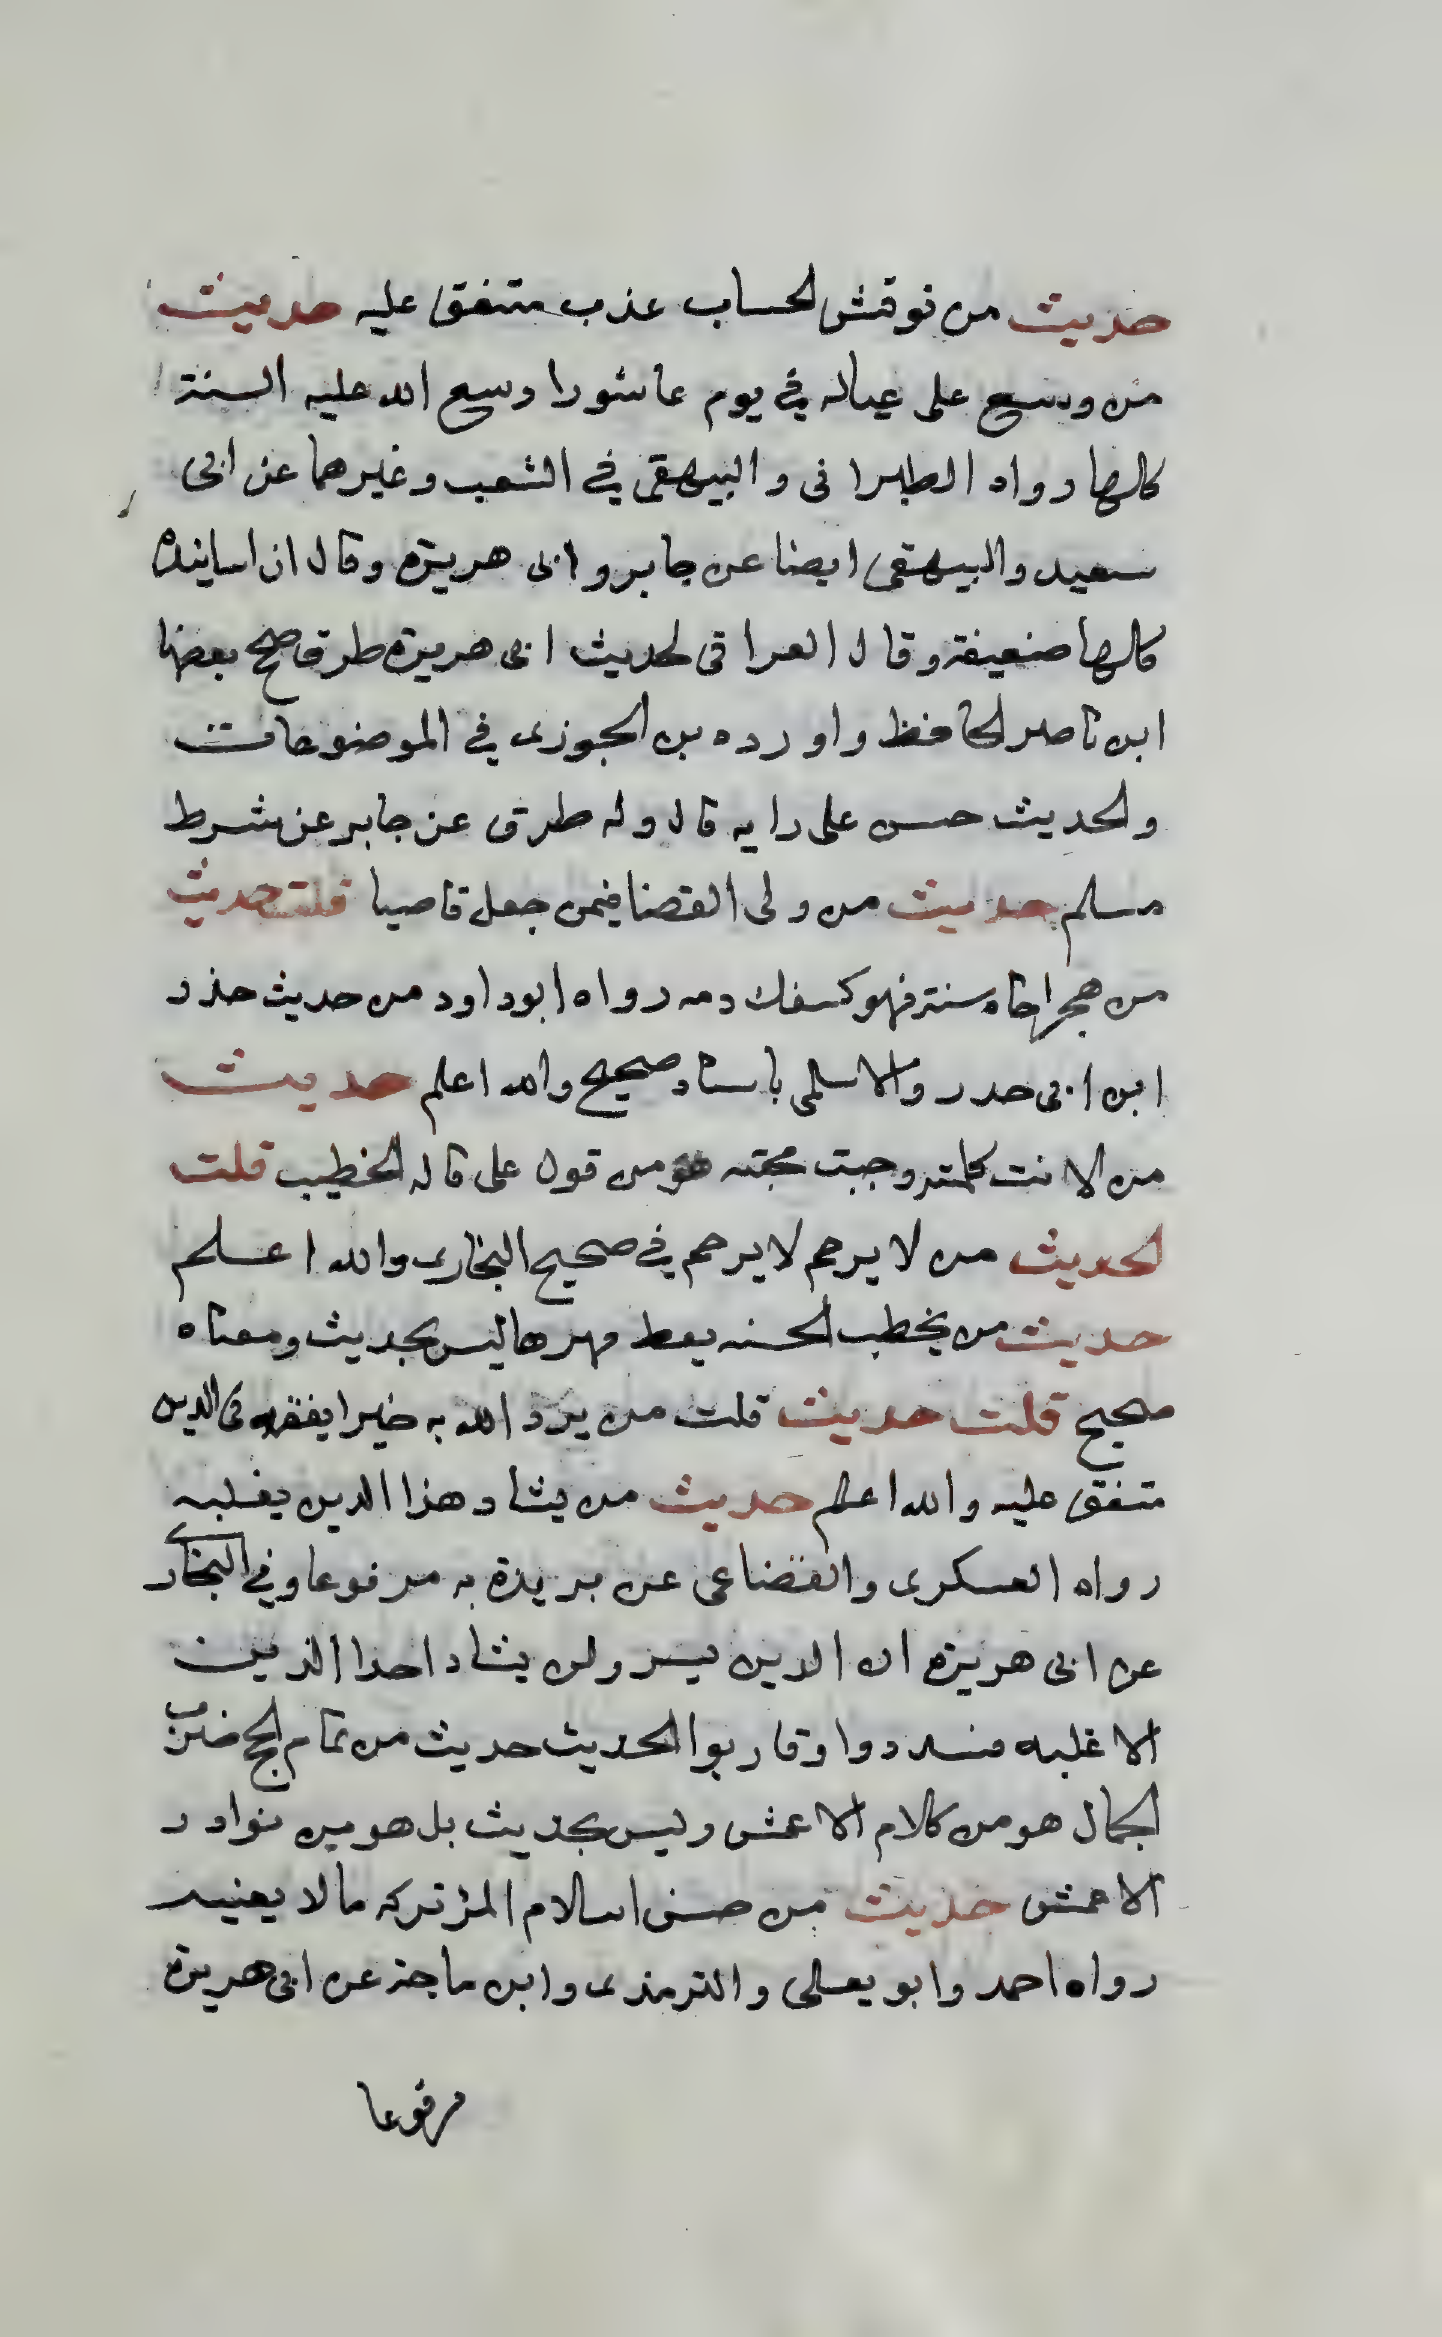 حديث من نوقش لحساب عذب متفق عليه حديث
من وسع على عياله في يوم عاشورا وسع الله عليه السنة
كلها رواه الطبراني والبيهقي في الشعب وغيرهما عن ابى
سعيد والبيهقى ايضا عن جابر وابى هريرة وقال ان اسانيده
كلها ضعيفة وقال العراقى لحديث ابى هريرة طرق صحح بعضها
ابن ناصر الحافظ واورده بن الجوزى في الموضوعات
والحديث حسن على رايه قال وله طرق عن جابر عن شرط
مسلم حديث من ولى القضا فيمن جعل قاضيا قلت حديث
من هجر اخاه سنة فهو كسفك دمه رواه ابو داود من حديث حذر
ابن ابى حدرد والاسلمى باسناد صحيح والله اعلم حديث
من لانت كلمته وجبت محبته هو من قول على قاله الخطيب قلت
لحديث من لا يرحم لا يرحم في صحيح البخارى والله اعلم
حديث من يخطب الحسنه يعط مهرها ليس بحديث ومعناه
صحيح قلت حديث قلت من يرد الله به خيرا يفقهه في الدين
متفق عليه والله اعلم حديث من يشاد هذا الدين يغلبه
رواه العسكرى والقضاعى عن بريدة به مرفوعا وفي البخار
عن ابى هريرة ان الدين يسر ولن يشاد احدا الدين
الا غلبه فسددوا وقاربوا الحديث حديث من تمام الحج ضرب
الجمال هو من كلام الاعمش وليس بحديث بل هو من نوادر
الاعمش حديث من حسن اسلام المرؤ تركه ما لا يعنيه
رواه احمد وابو يعلى والترمذى وابن ماجة عن ابى هريرة
مرفوعا